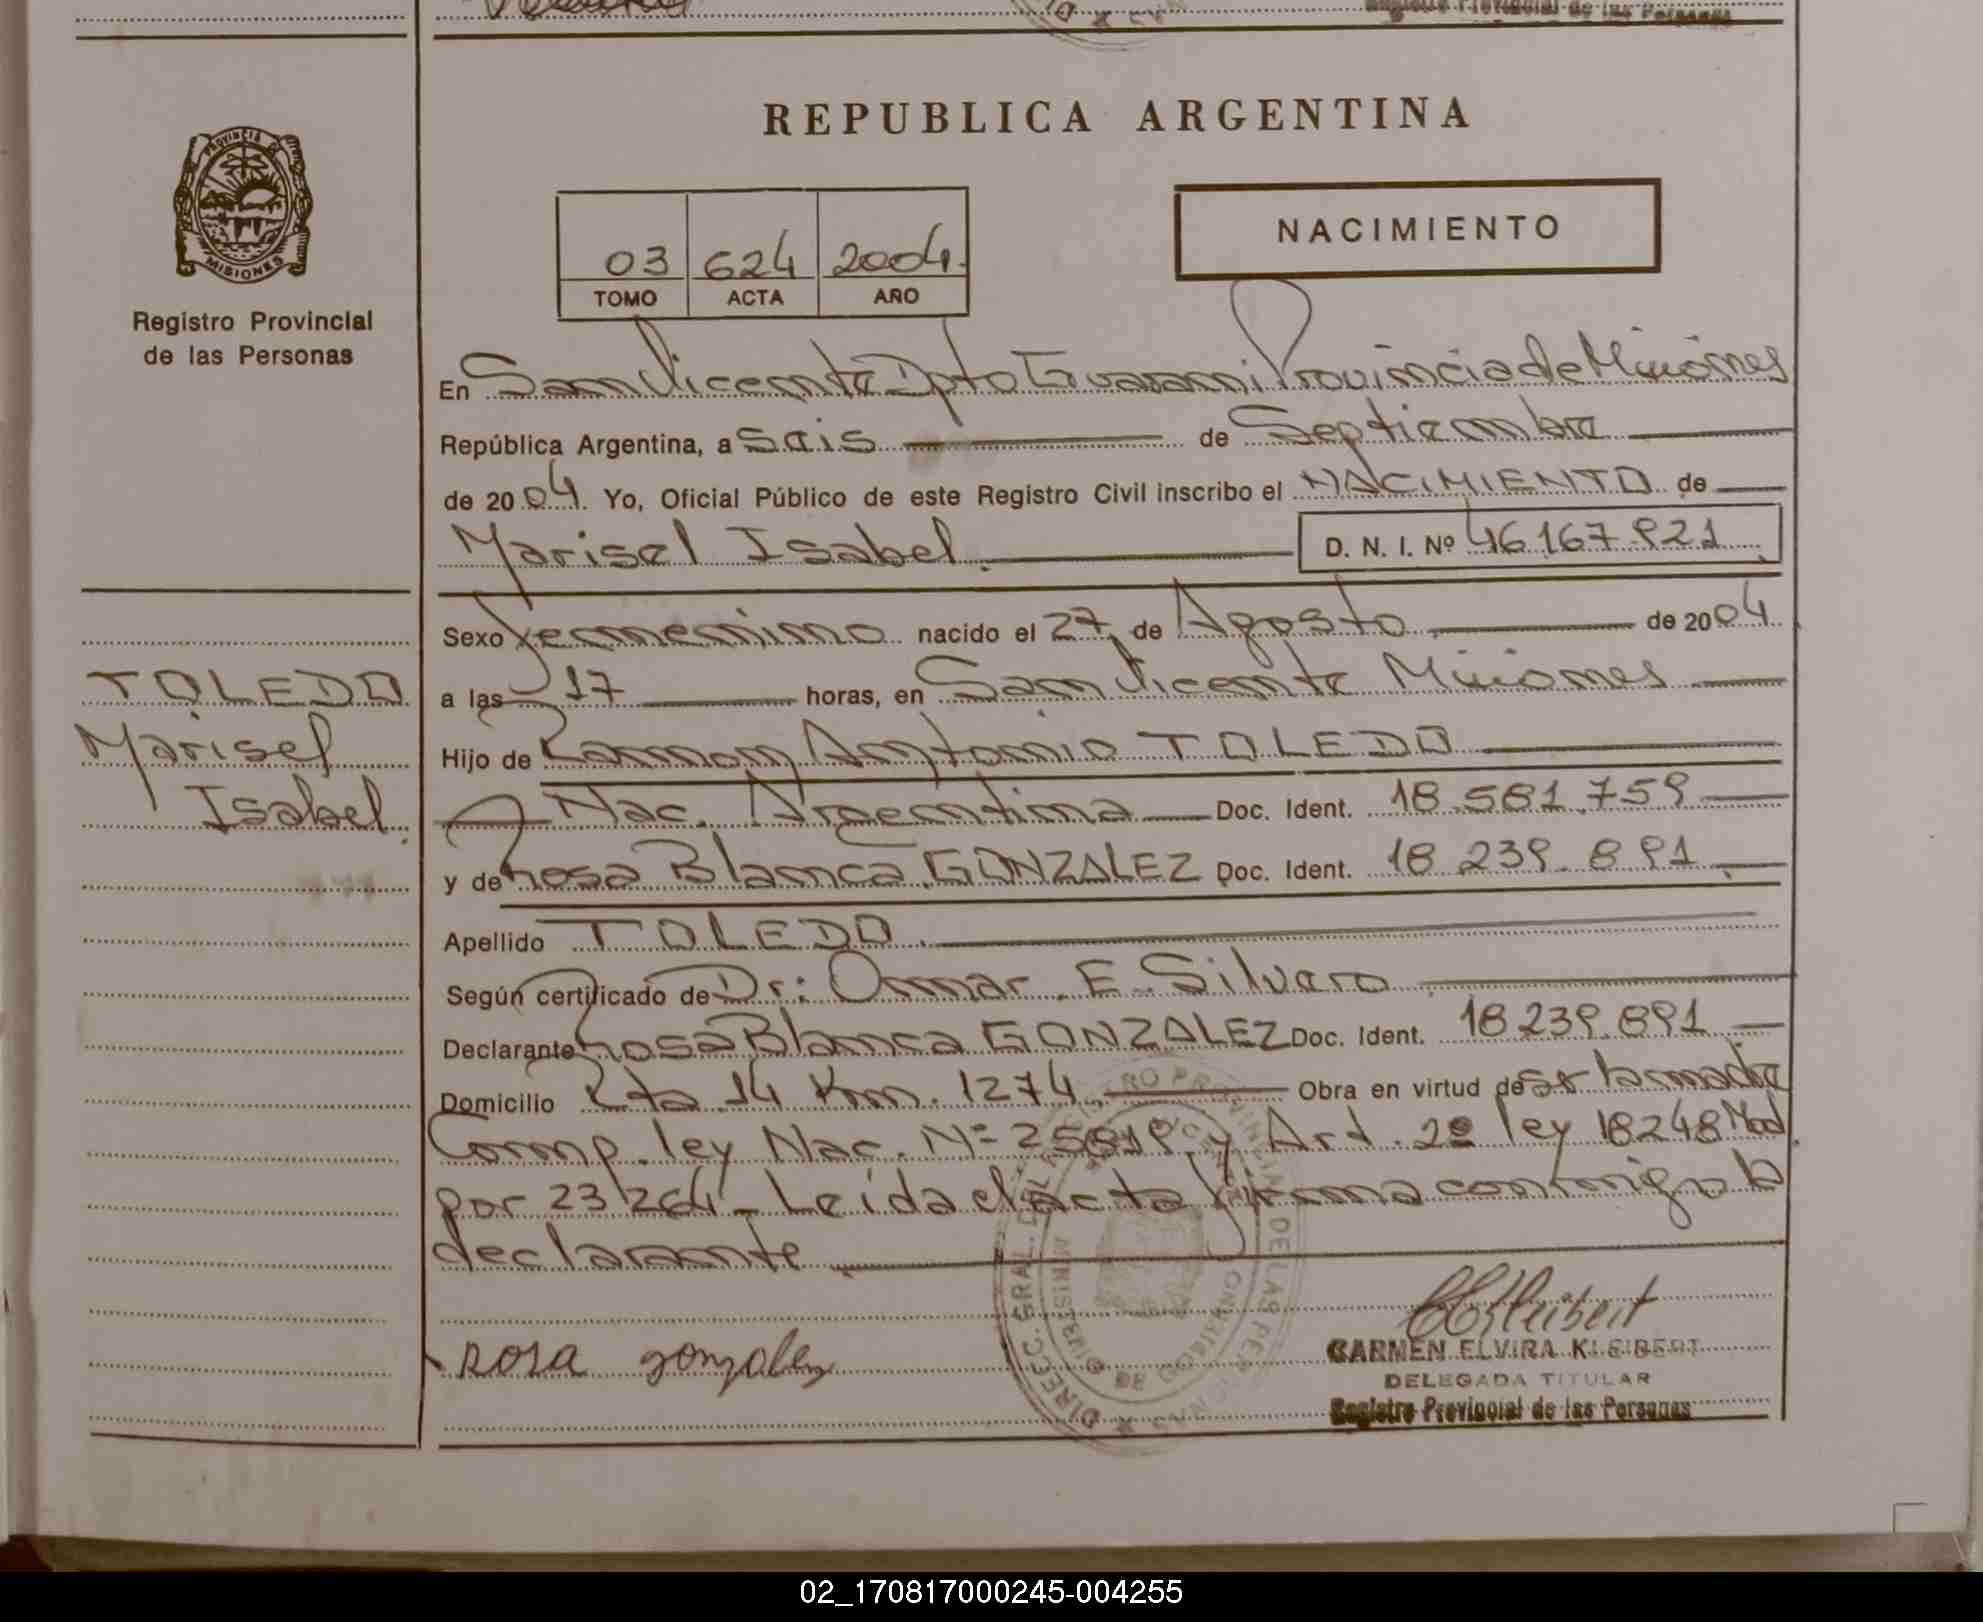 REPUBLICA ARGENTINA
PROVINCIA DE
MISIONES
Registro Provincial
de las Personas
03 624 2004
TOMO ACTA AÑO
NACIMIENTO
En San Vicente Dpto Guarani Provincia de Misiones
República Argentina, a seis de Septiembre
de 2004. Yo, Oficial Público de este Registro Civil inscribo el NACIMIENTO de
Marisel Isabel. D. N. I. Nº 46.167.921
Sexo femenino nacido el 27 de Agosto de 2004
a las 17 horas, en San Vicente Misiones
Hijo de Ramon Antonio TOLEDO
Nac. Argentina Doc. Ident. 18.581.759
y de Rosa Blanca GONZALEZ Doc. Ident. 18.239.891
Apellido TOLEDO
Según certificado de Dr: Omar E. Silvero
Declarante Rosa Blanca GONZALEZ Doc. Ident. 18.239.891
Domicilio Rta 14 Km. 1274 Obra en virtud de ser la madre
Comp. ley Nac. Nº 25819 y Art. 2º ley 18248 Mod
por 23264 - Leida el acta firma conmigo la
declarante
TOLEDO
Marisel
Isabel.
rosa gonzalez
CARMEN ELVIRA KLEIBERT
DELEGADA TITULAR
Registro Provincial de las Personas
02_170817000245-004255